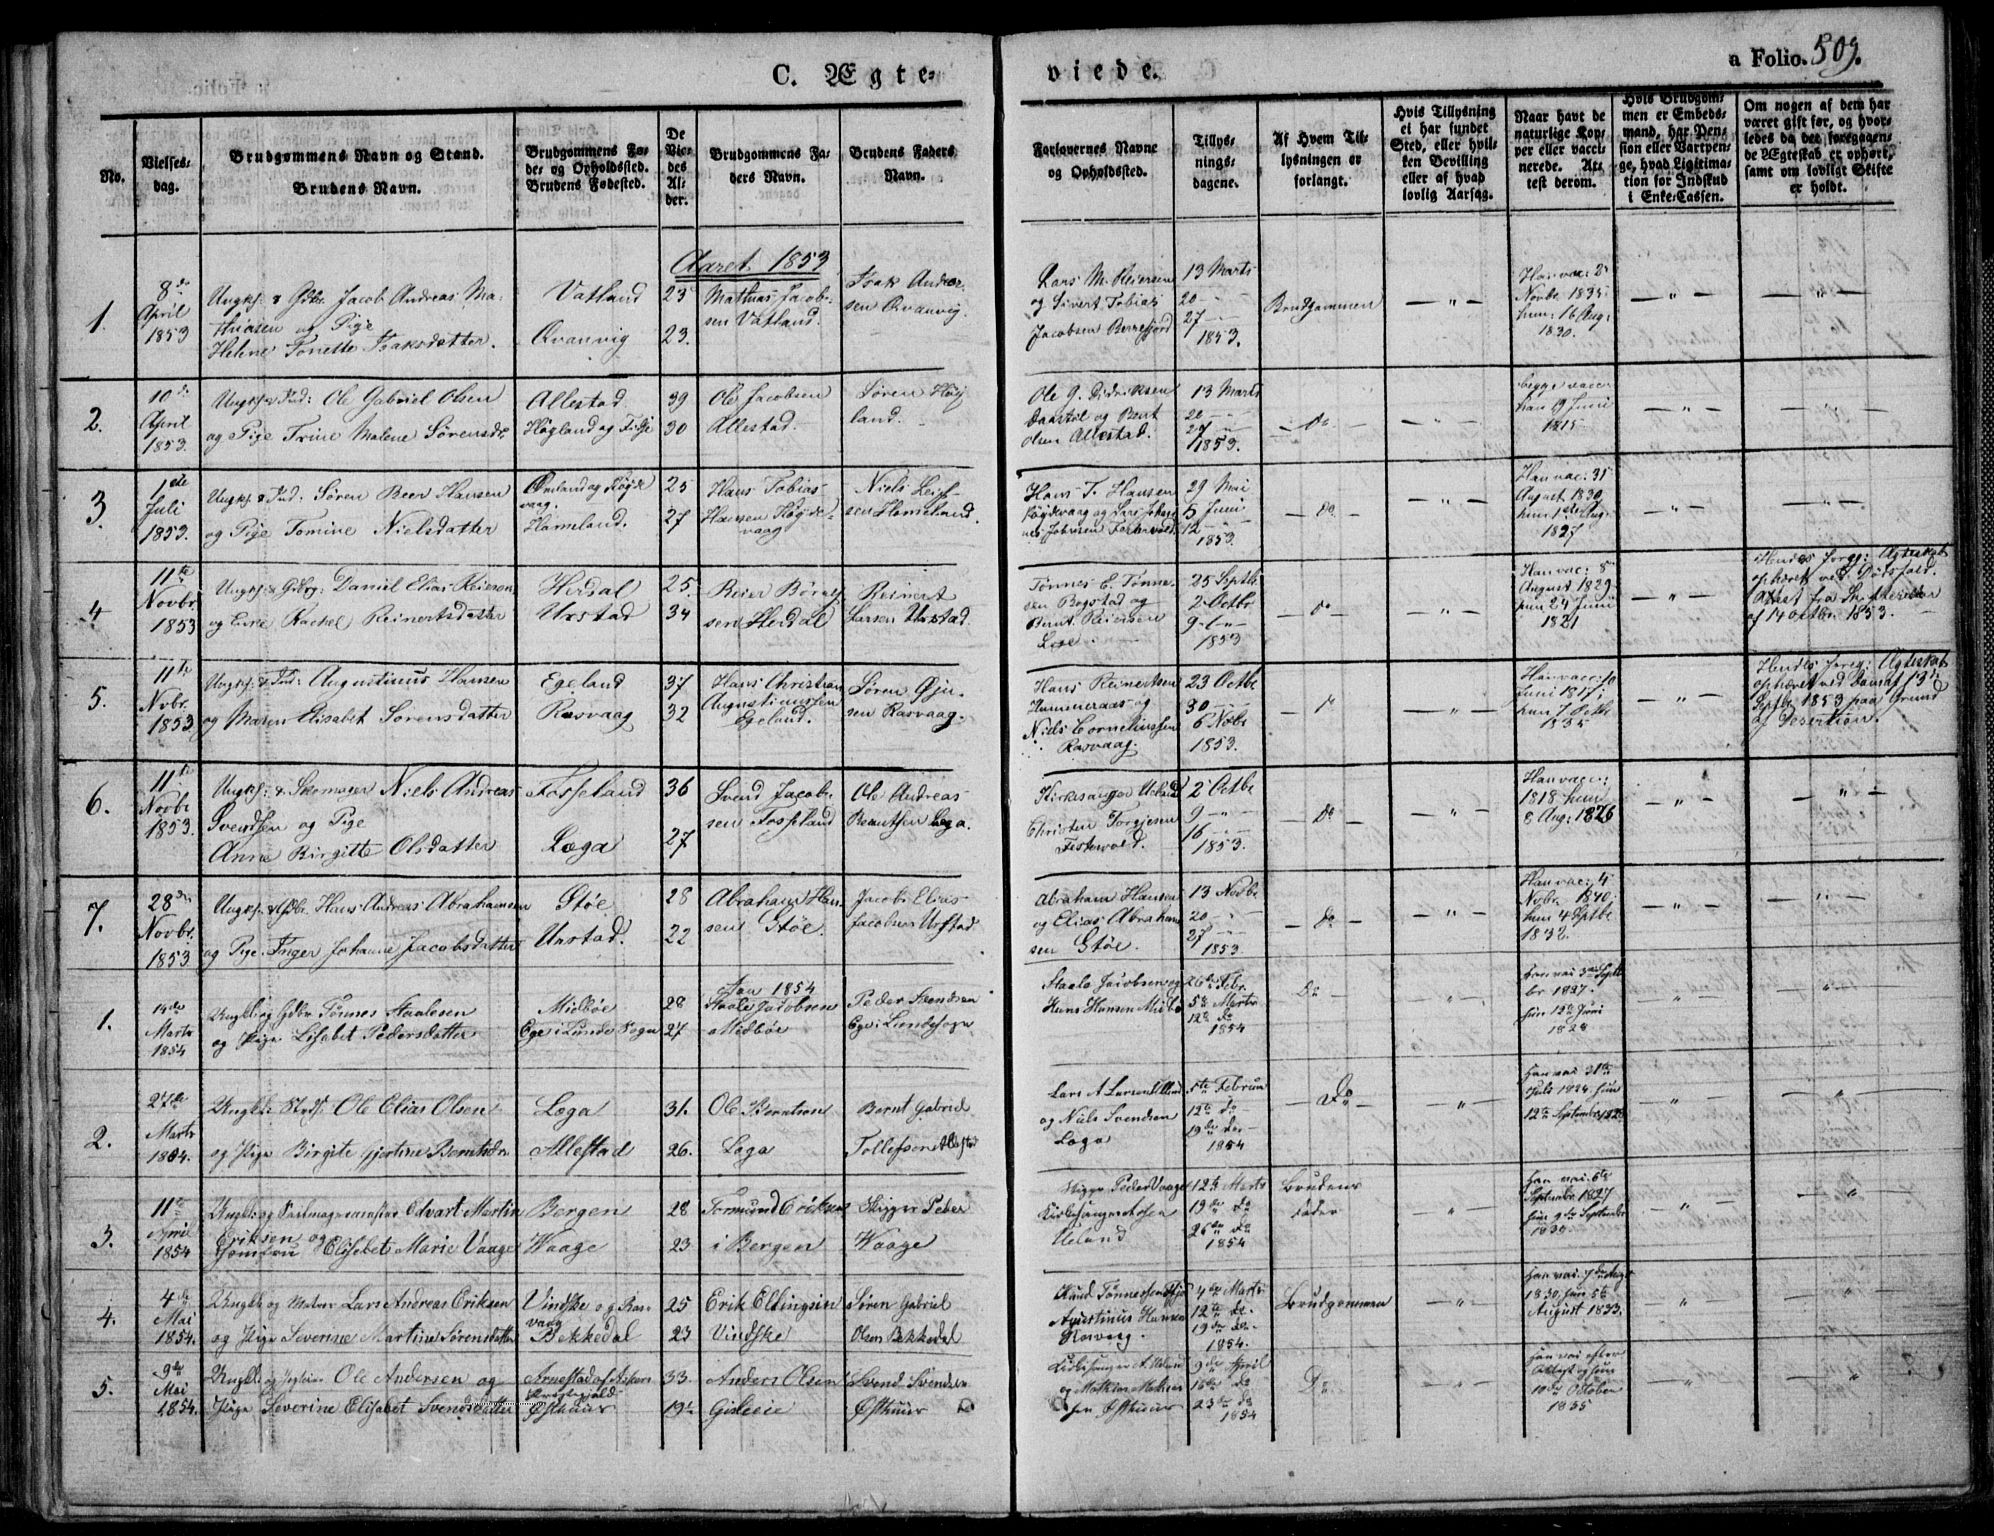 C. Ægte=
viede.
a Folio. 509.
No.
Vielses=
dag.
Brudgommens Navn og Stand.
Brudens Navn.
Brudgommens Fø=
de= og Opholdssted.
Brudens Fødested.
De
Vie=
des
Al=
der.
Brudgommens Fa=
ders Navn.
Brudens Faders
Navn.
Forlovernes Navne
og Opholdssted.
Tillys=
nings=
dagene.
Af Hvem Til=
lysningen er
forlangt.
Hvis Tillysning
ei har fundet
Sted, eller hvil=
ken Bevilling
eller af hvad
lovlig Aarsag.
Naar havt de
naturlige Kop=
per eller vacci=
nerede. At=
test derom.
Hvis Brudgom=
men er Embeds=
mand, har Pen=
sion eller Vartpen=
ge, hvad Ligitima=
tion for Indskud
i Enke=Cassen.
Om nogen af dem har
været gift før, og hvor=
ledes da det foregaaen=
de Ægteskab er ophørt,
samt om lovligt Skifte
er holdt.
Aaret 1853
1.
8de
April
1853
Ungk. & Gdbr. Jacob Andreas Ma=
thiasen og Pige
Helene Tonette Isaksdatter.
Vatland
Qvanvig
23
23.
Mathias Jacob=
sen Vatland.
Isak Andrea=
sen Qvanvig.
Lars M. Reiersen
og Sivert Tobias
Jacobsen Berrefjord
13 Marts
20 — —
27 — —
1853.
Brudgommen
Han vac: 2
Novbr 1835
hun: 16 Aug:
1830.
2.
10de
April
1853.
Ungk. & Ind: Ole Gabriel Olsen
og Pige Trine Malene Sørensdr
Allestad
Høgland og Fidje
39
30
Ole Jacobsen
Allestad.
Søren Høg
land.
Ole G. Didriksen
Daastøl og Bent
Olsen Allestad.
13 Marts
20 — —
27 — —
1853.
— Do —
begge vacc:
han 9 Juni
1815
3.
1ste
Juli
1853.
Ungk. & Ind: Søren Beer Hansen
og Pige Tomine Nielsdatter
Omland og Høyde
vaag.
Hameland.
25
27
Hans Tobias
Hansen Høyde=
vaag
Niels Leif=
sen Hameland.
Hans T. Hansen
Høydevaag og
29 Mai
5 Juni
12 — —
1853
— Do —
Han vac: 31
August 1830
hun 1ste Aug:
1827
4
11te
Novbr.
1853
Ungk. & Gdbr: Daniel Elias Reiersen
og Enke Rachel Reinertsdatter
Herdal
Urstad
25.
34
Reier Børe=
sen Herdal
Reinert
Larsen Urstad.
Tønnes E. Tønne=
sen Bogstad og
Bernt Reiersen
25 Septbr
2 Octbr
9 — —
1853
— Do —
Han vac: 5
August 1829
hun 24 Juni
1821
Hendes foreg: Ægteskab
ophævet ved Dødsfald.
Attest fra Skifteretten
af 14 Octbr. 1853.
5.
11te
Nvbr.
1853
Ungk. & Ind: Augustinus Hansen
og Maren Elisabet Sørensdatter
Egeland
Rasvaag
37
32
Hans Christian
Augustinussen
Egeland.
Søren Øju=
sen Rasvaag.
Hans Reinertsen
Hummeraas og
Niels Corneliussen
Rasvaag.
23 Octbr
30 — —
6 Nobr
1853.
— Do —
Han vacc: 10
Juni 1817;
hun 7 Octbr
1835
Hendes foreg: Ægteskab
ophævet ved Dom af 13de
Septbr 1853 paa Grund
af Desertion.
6.
11te
Novbr
1853.
Ungk: & Skomager Niels Andreas
Svendsen og Pige
Anne Birgitte Olsdatter
Fosseland
Loga
36
27
Svend Jacob=
sen Fosseland
Ole Andreas
Berntsen Loga.
Kirkesanger Ueland
Christen Torgjesen
2 Octbr
9 — —
16 — —
1853.
— Do —
Han vac:
1818 hun
8 Aug: 1826
7.
28de
Novbr.
1853
Ungk. & Gdbr. Hans Andreas Abrahamsen
og Pige Inger Johanne Jacobsdatter
Støe
Urstad.
28
22
Abraham Han=
sen Støe.
Jacob Elias
Jacobsen Urstad
Abraham Hansen
og Elias Abraham
sen Støe.
13 Novbr
20 — —
27 — —
1853
— Do —
Han vac: 4
Novbr. 1840;
hun 4 Sptbr
1832.
Aar 1854
1.
14de
Marts
1854
Ungk: og Gdbr Tønnes Staalesen
og Pige Lisabet Pedersdatter
Midbøe
Ege i Lunde Sogn
28
27
Staale Jacobsen
Midbøe
Peder Svendsen
Ege i Lundesogn
Staale Jacobsen og
Hans Hansen Midbø
26de Febr.
5te Marts
12te do
1854
Do
Han vac 3die Septb
br 1827.
hun 12te Juni
1828
2.
27de
Marts
1854.
Ungk: Ole Elias Olsen
og Pige Birgite Gjertine Berntsdr
Loga
Allestad
31.
26.
Ole Berntsen
Loga
Bernt Gabriel
Tollefsen Allestad
Lars A Larsen
og Niels Svendsen
Loga
5te Februar
12te do
19de do
1854
— Do —
Han vac 31te
Juli 1824. hun
12te September 1828
3.
11te
April
1854
Ungk: og Edvart Martin
Eriksen og
Jomfru Elisabet Marie Vaage
Bergen
Waage
28
23
Tormund Eriksen
i Bergen
Skipper Peder
Waage
Skipper Peder Vaage
Kirkesanger
Ueland
12te Marts
19de do
26de do
1854
Brudens
Fader
Han vac 6te
September 1827
hun 9de September
1830
4.
4de
Mai
1854.
Ungk og Matros Lars Andreas Eriksen
og Pige Severine Martine Sørensdatter
Vindske og Ras=
vaag
Bekkedal
25
23
Erik Ellingsen
Vindske
Søren Gabriel
Olsen Bekkedal
Agustinus Hansen
Rasvaag.
4de Marts
12te do.
19de do.
1854.
Brudgommen
Han vac. 7de Aug.
1830, hun 5te
August 1833.
5.
9de
Mai
1854.
Ungk: og Ole Andersen og
Pige Severine Elisabet Svendsdatter
Arnestad af Askers
Præstegjeld
Østhuus
33.
19½
Anders Olsen
Gisleie
Svend Svendsen
Østhuus
Kirkesanger A. Ueland
og Mathias Mathias
sen Østhuus
9de April
16de do
23de do
1854
Do
Han vac efter
Attest og hun
10de October
1835